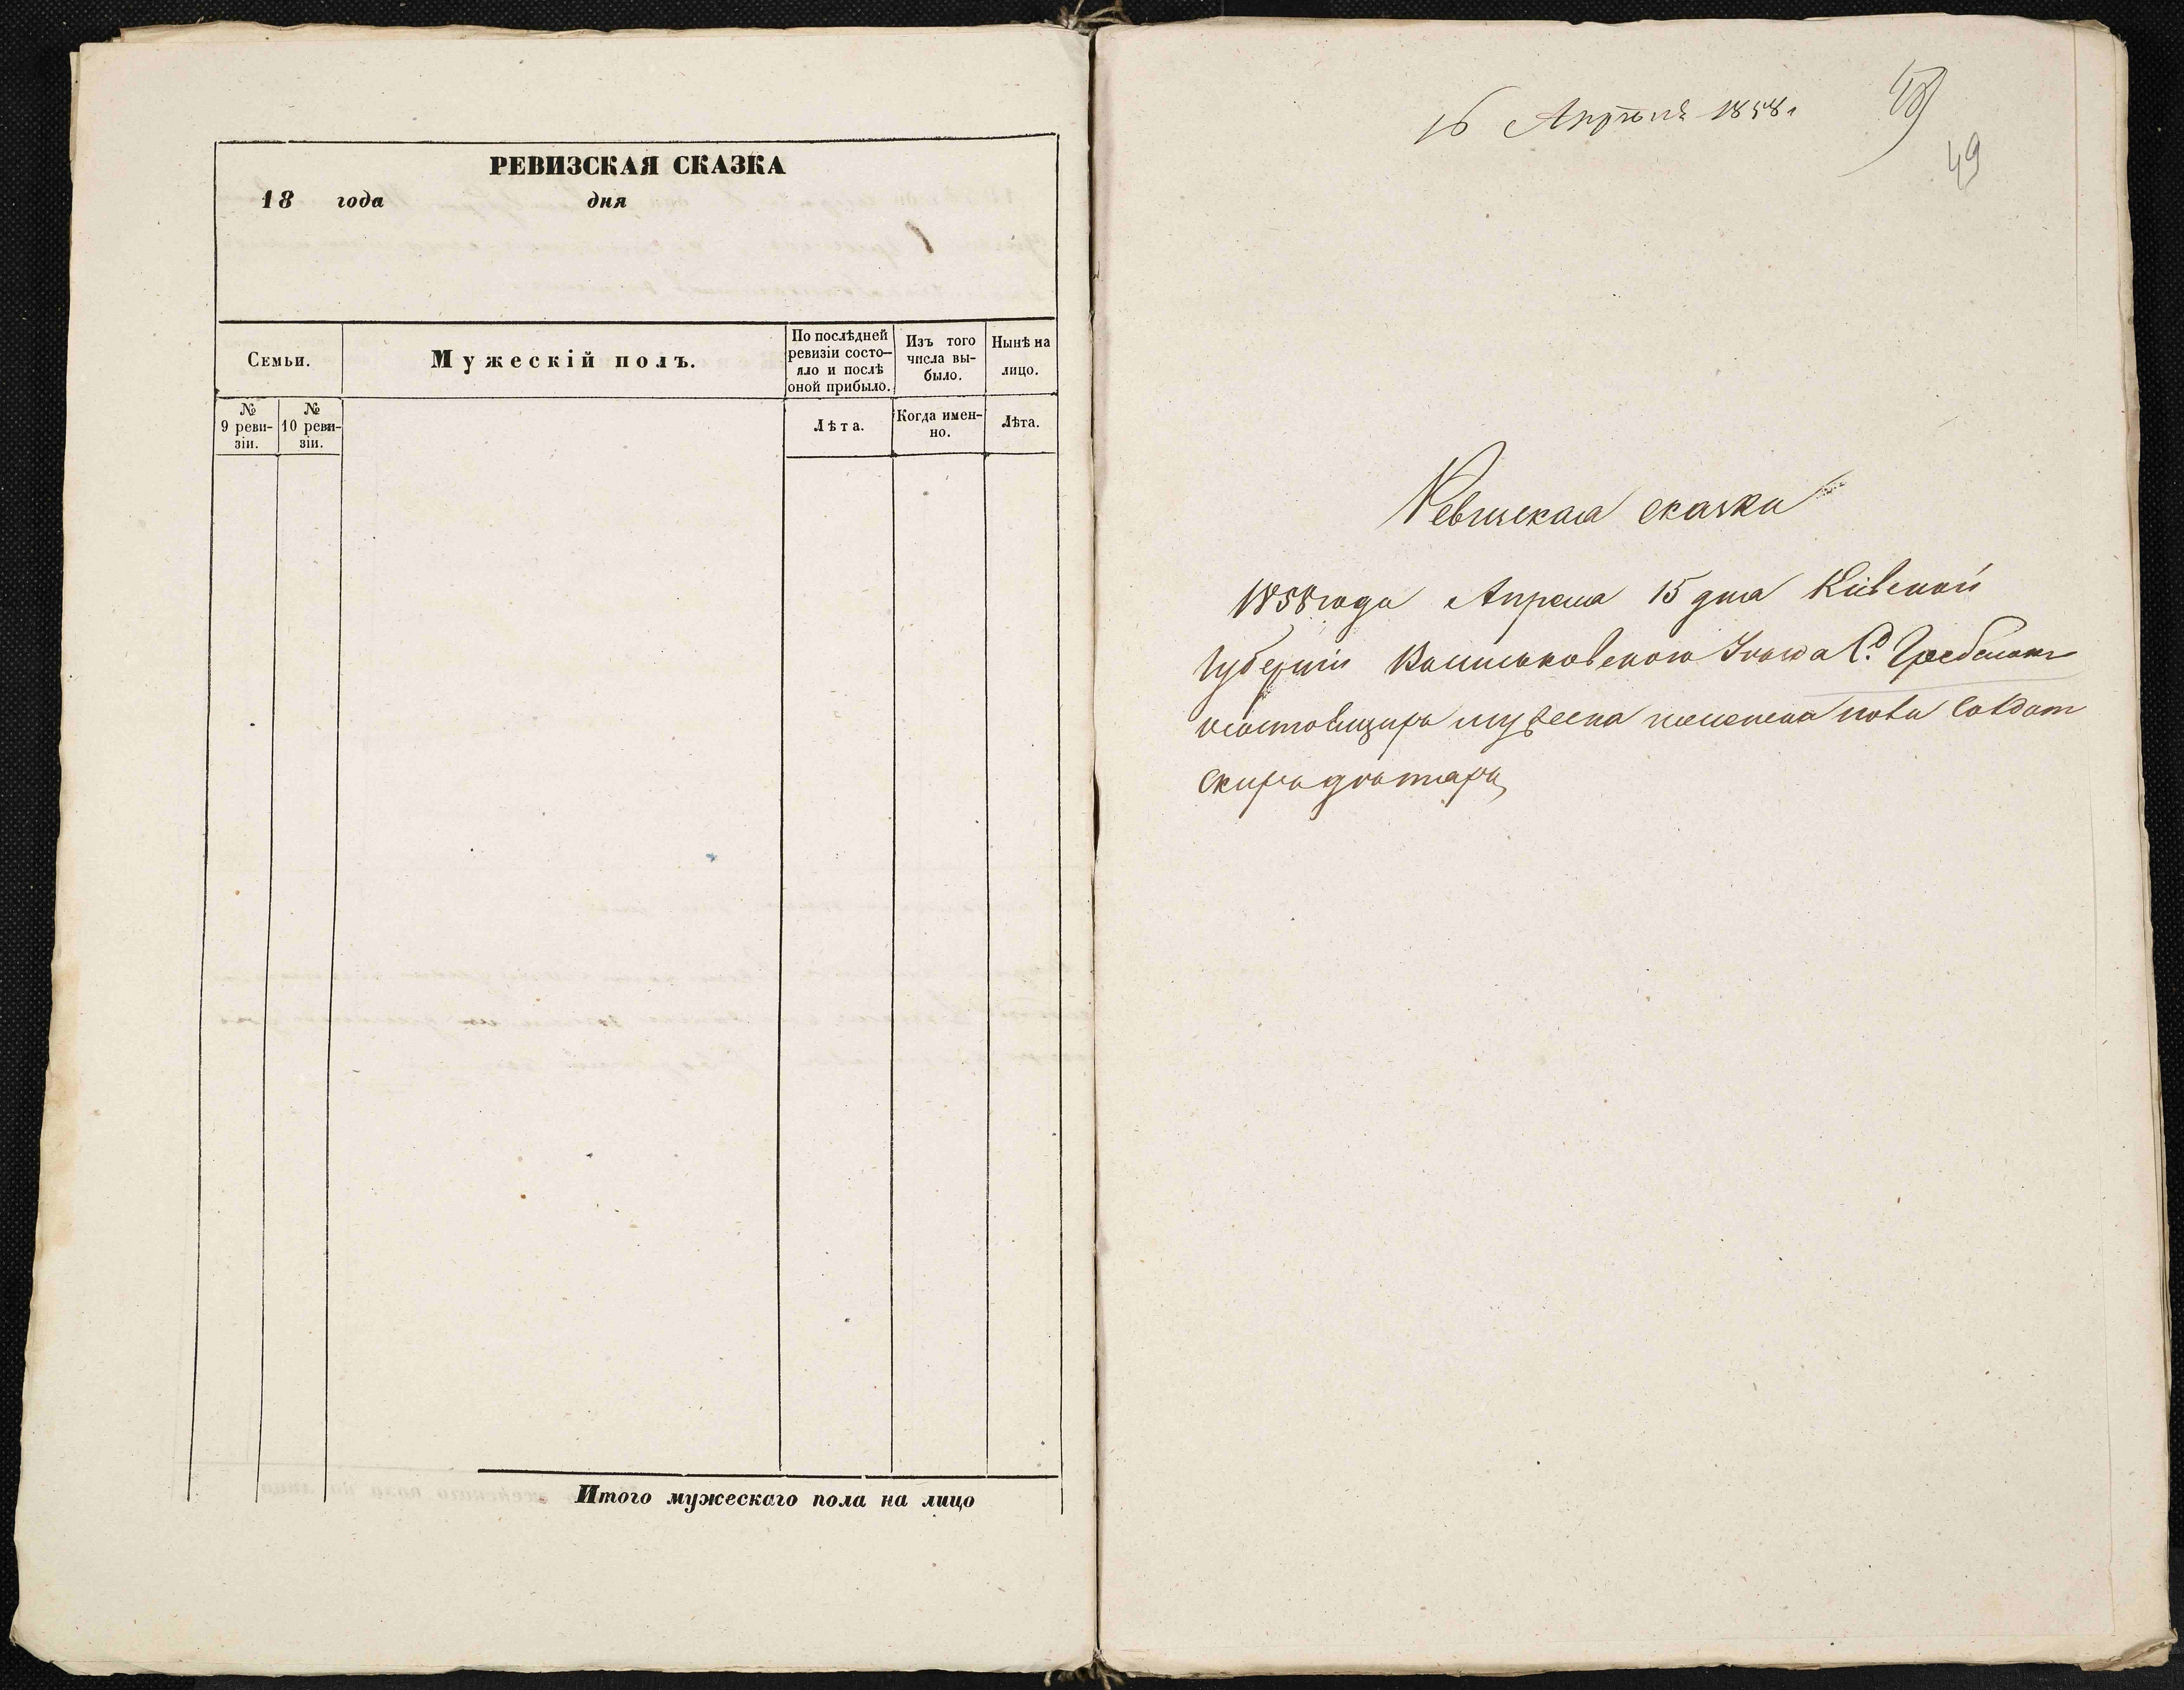 РЕВИЗСКАЯ СКАЗКА
18 года дня
Семьи.
Мужескій полъ.
По послѣдней
ревизіи состо-
яло и послѣ
оной прибыло.
Изъ того
числа вы-
было.
Нынѣ на
лицо.
№
9 реви-
зіи.
№
10 реви-
зіи.
Лѣта.
Когда имен-
но.
Лѣта.
Итого мужескаго пола на лицо
16 Апрѣля 1858 г
49
Ревизская сказка
1858 года Апреля 15 дня Кіевской
Губерніи Васильковского С.
о состоящихъ мужеска женска пола Солдат